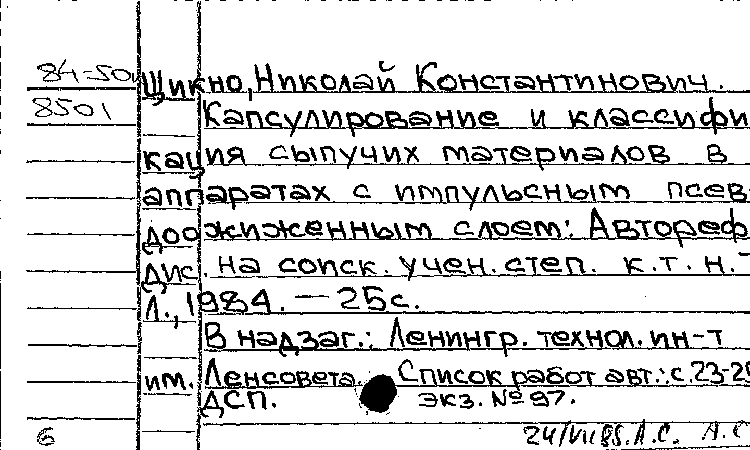 84-50
Щикно, Николай Константинович.
8501
Капсулирование и классифи
кация сыпучих материалов в
аппаратах с импульсным псев
доожиженным слоем: Автореф
дис. на соиск. учен. степ. к.т.н. -
Л., 1984. — 25с.
В надзаг.: Ленингр. технол. ин-т
им. Ленсовета. Список работ авт.: с. 23-25
ДСП. экз. № 97.
6
24/VII 85. А.С. А.С